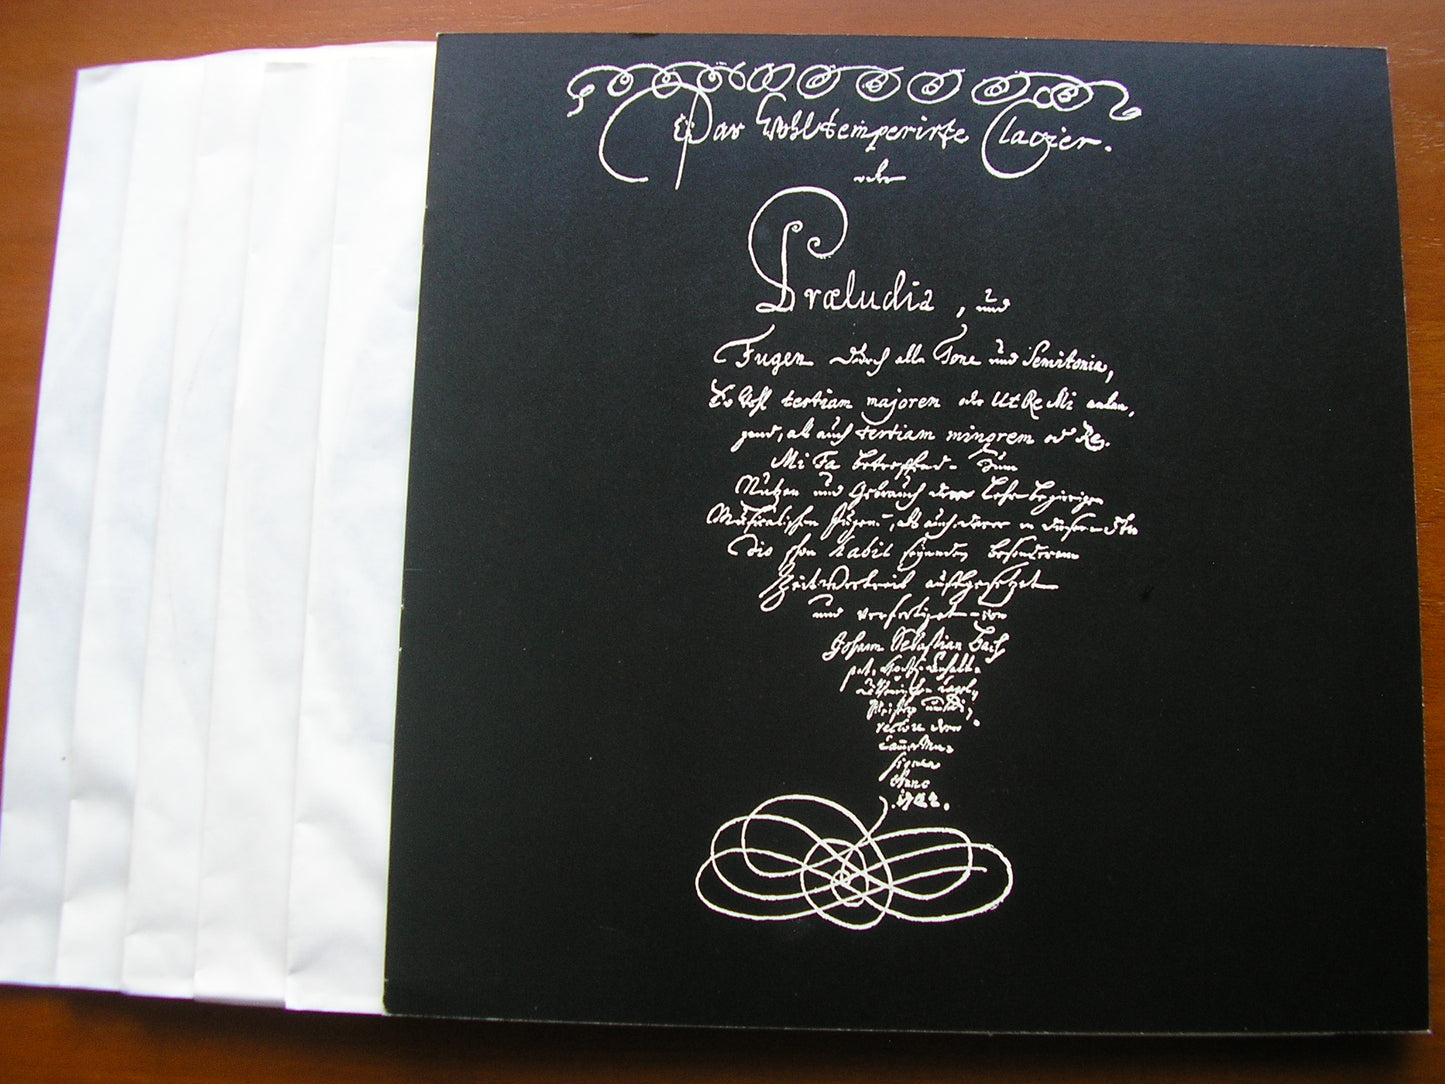 Das Wohltemperirte Clavier.
oder
Præludia, und
Fugen durch alle Tone und Semitonia,
So wohl tertiam majorem oder Ut Re Mi anlan,
gend, als auch tertiam minorem oder Re
Mi Fa betreffend. Zum
Nutzen und Gebrauch der Lehr-begierigen
Musicalischen Jugend, als auch derer in diesem stu
dio schon habil seyenden besonderem
ZeitVertreib auffgesetzet
und verfertiget von
Johann Sebastian Bach
p.t. Hoch
Anhalt-
Cöthenischen Capel-
Meistern und Di-
rectore derer
Cammer Mu-
siquen
Anno
1722.